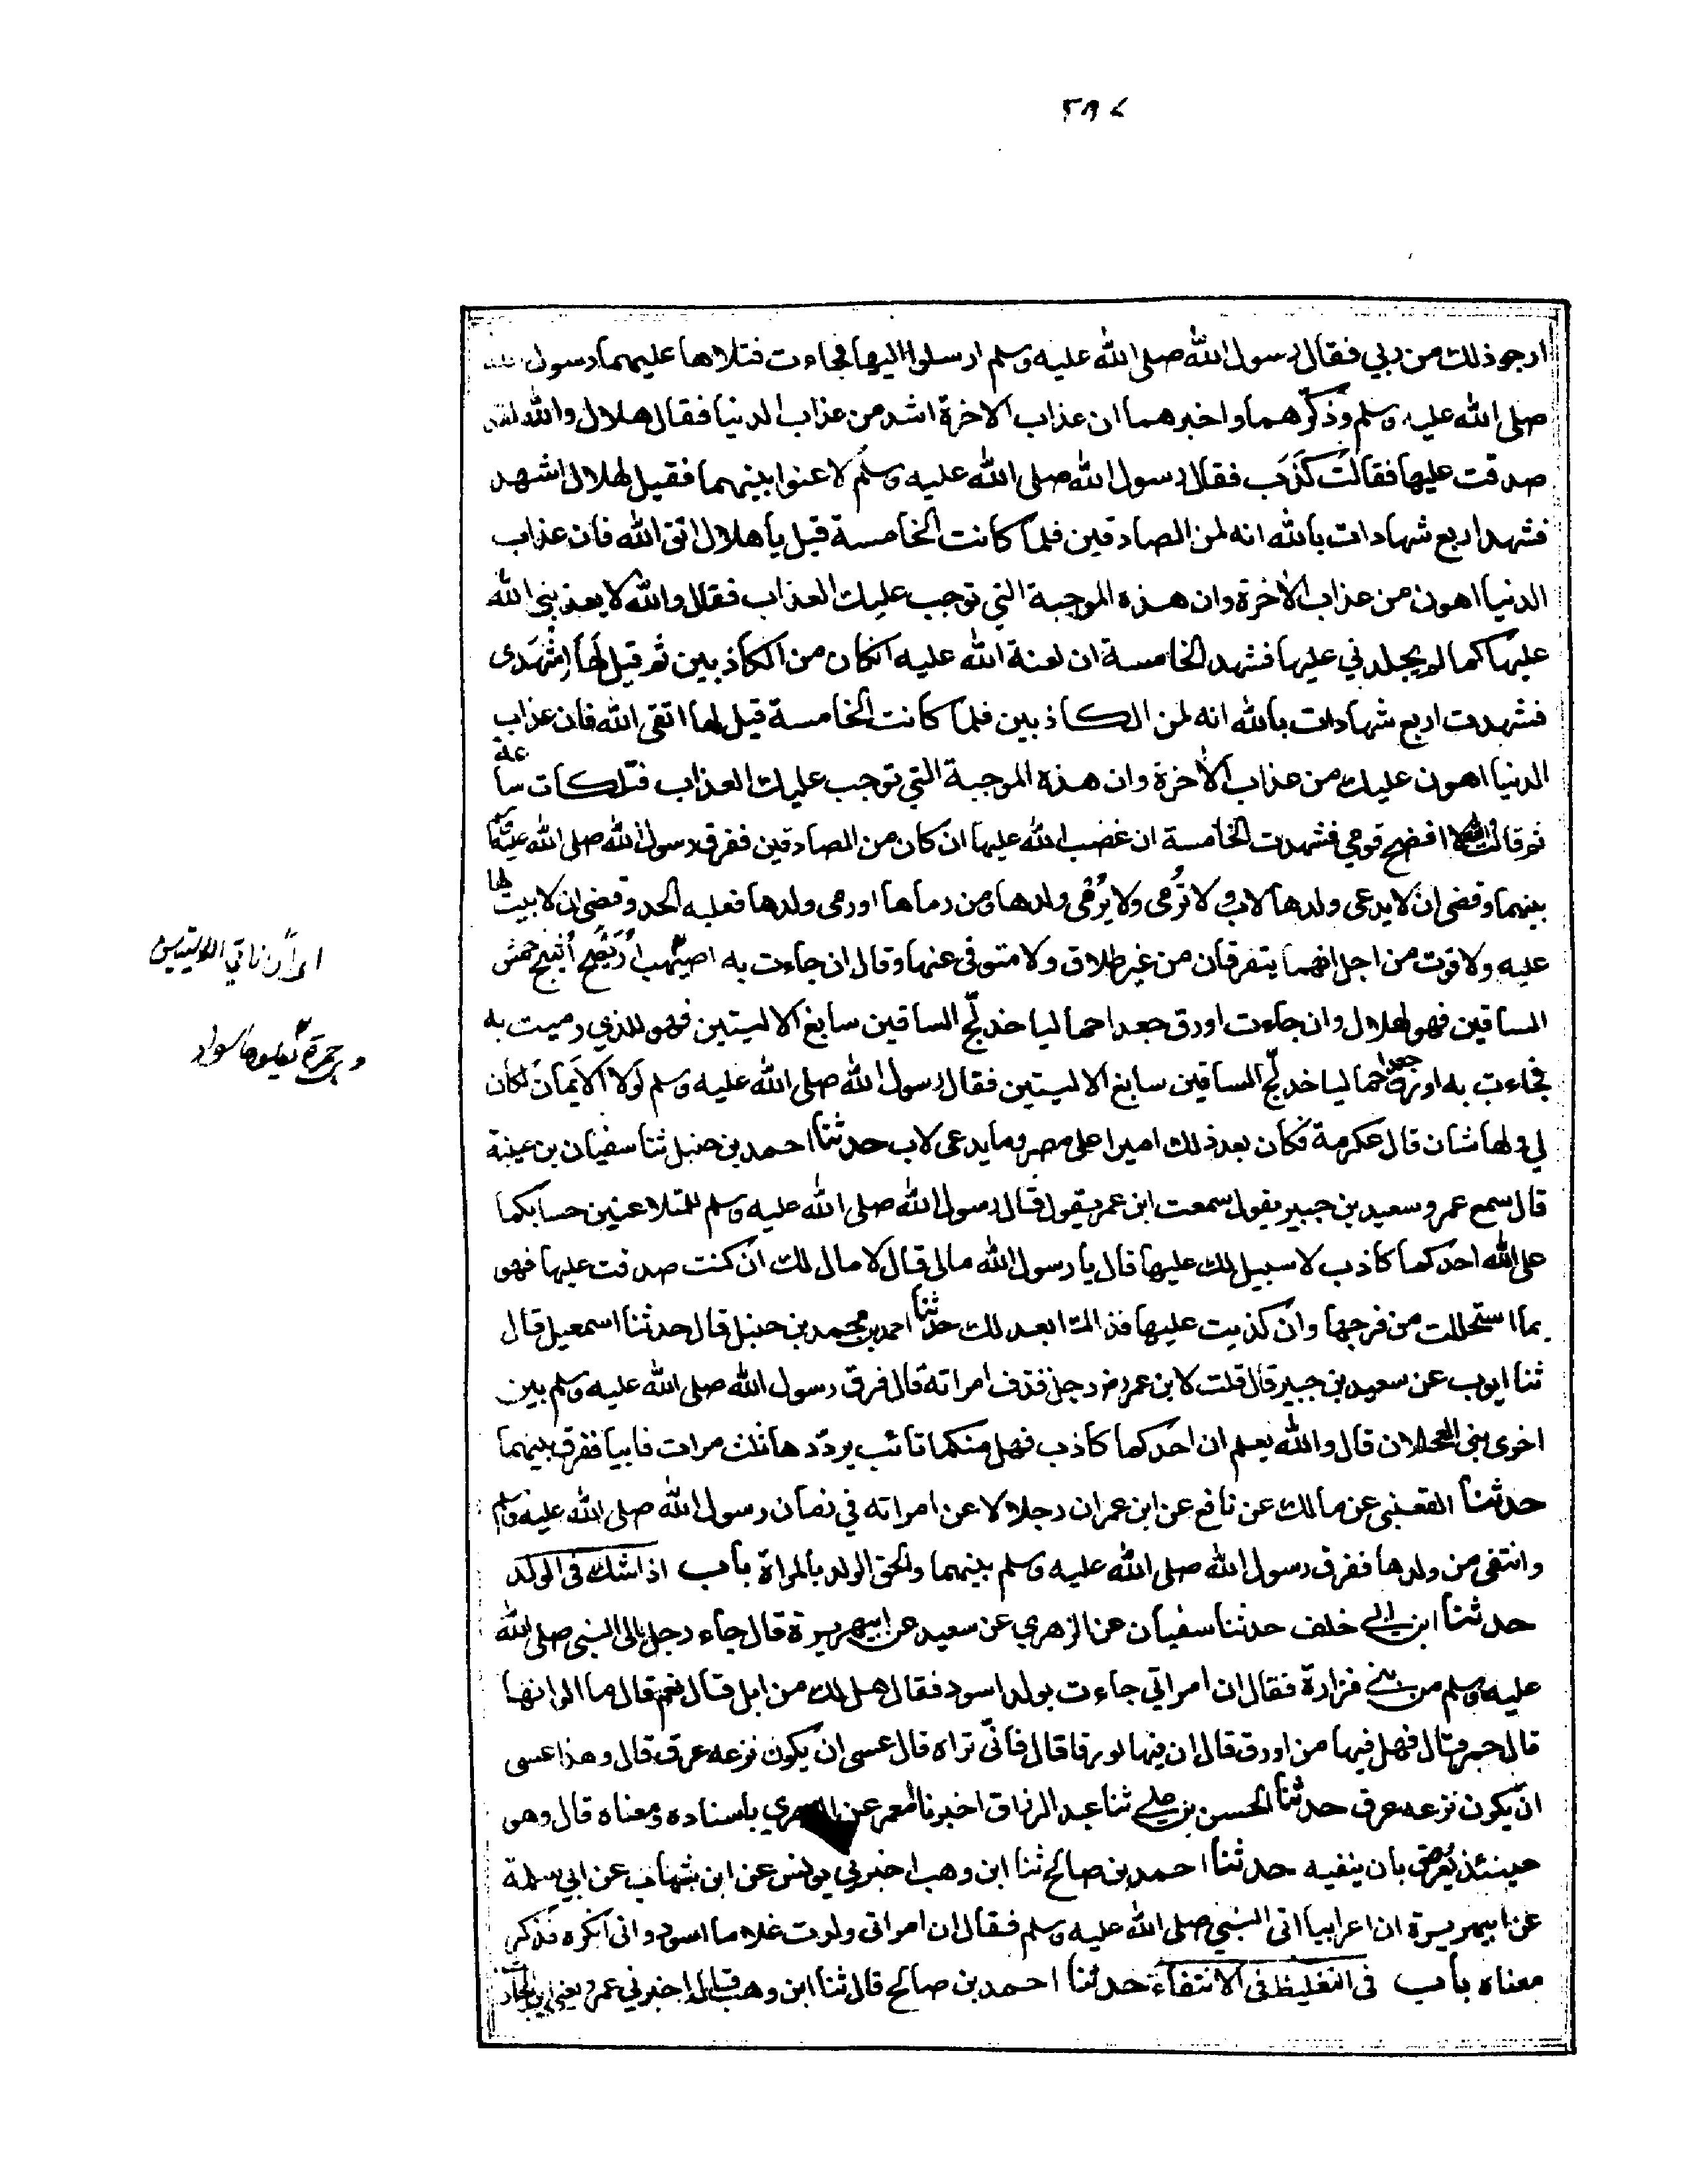 ارجو ذلك من ربي فقال رسول الله صلى الله عليه وسلم ارسلوا اليها فجاءت فتلاها عليهما رسول الله
صلى الله عليه وسلم وذكّرهما واخبرهما ان عذاب الاخرة اشد من عذاب الدنيا فقال هلال والله لقد
صدقت عليها فقالت كَذَب فقال رسول الله صلى الله عليه وسلم لاعنوا بينهما فقيل لهلال اشهد
فشهد اربع شهادات بالله انه لمن الصادقين فلما كانت الخامسة قيل يا هلال اتق الله فان عذاب
الدنيا اهون من عذاب الاخرة وان هذه الموجبة التي توجب عليك العذاب فقال والله لا يعذبني الله
عليها كما لم يجلدني عليها فشهد الخامسة ان لعنة الله عليه ان كان من الكاذبين ثم قيل لها اِشْهَدى
فشهدت اربع شهادات بالله انه لمن الكاذبين فلما كانت الخامسة قيل لها اتقى الله فان عذاب
الدنيا اهون عليك من عذاب الاخرة وان هذه الموجبة التي توجب عليك العذاب فتلكات ساعة
ثم قالت والله لا افضح قومي فشهدت الخامسة ان غضب الله عليها ان كان من الصادقين ففرق رسول الله صلى الله عليه وسلم
بينهما وقضى ان لا يدعى ولدها لاب ولا تُرمى ولا يُرمى ولدها ومن رماها او رمى ولدها فعليه الحد وقضى ان لا بيت لها
عليه ولا قوت من اجل انهما يتفرقان من غير طلاق ولا متوفى عنها وقال ان جاءت به اصيهب اُرَيْصِح اُثَيْبِج حمش
الساقين فهو لهلال وان جاءت اورق جعدا جماليا خدلّج الساقين سابغ الاليتين فهو للذي رميت به
فجاءت به اورق جعدا جماليا خدلّج الساقين سابغ الاليتين فقال رسول الله صلى الله عليه وسلم لولا الايمان لكان
لي ولها شان قال عكرمة فكان بعد ذلك اميرا على مصر وما يدعى لاب حدثنا احمد بن حنبل ثنا سفيان بن عيينة
قال سمع عمرو سعيد بن جبير يقول سمعت ابن عمر يقول قال رسول الله صلى الله عليه وسلم للمتلاعنين حسابكما
على الله احدكما كاذب لا سبيل لك عليها قال يا رسول الله مالى قال لا مال لك ان كنت صدقت عليها فهو
بما استحللت من فرجها وان كذبت عليها فذاك ابعد لك حدثنا احمد بن محمد بن حنبل قال حدثنا اسمعيل قال
ثنا ايوب عن سعيد بن جبير قال قلت لابن عمر رجل قذف امراته قال فرق رسول الله صلى الله عليه وسلم بين
اخوى بنى العجلان قال والله يعلم ان احدكما كاذب فهل منكما تائب يردّدها ثلث مرات فابيا ففرق بينهما
حدثنا القعنبى عن مالك عن نافع عن ابن عمر ان رجلا لاعن امراته في زمان رسول الله صلى الله عليه وسلم
وانتفى من ولدها ففرق رسول الله صلى الله عليه وسلم بينهما والحق الولد بالمراة باب اذا شك فى الولد
حدثنا ابن ابي خلف حدثنا سفيان عن الزهري عن سعيد عن ابيهريرة قال جاء رجل الى النبى صلى الله
عليه وسلم من بني فزارة فقال ان امراتي جاءت بولد اسود فقال هل لك من ابل قال نعم قال ما الوانها
قال حمر قال فهل فيها من اورق قال ان فيها لورقا قال فانّى تراه قال عسى ان يكون نزعه عرق قال وهذا عسى
ان يكون نزعه عرق حدثنا الحسن بن علي ثنا عبد الرزاق اخبرنا معمر عن الزهري باسناده ومعناه قال وهو
حينئذ يُعرض بان ينفيه حدثنا احمد بن صالح ثنا ابن وهب اخبرني يونس عن ابن شهاب عن ابي سلمة
عن ابيهريرة ان اعرابيا اتى النبي صلى الله عليه وسلم فقال ان امراتى ولدت غلاما اسود وانى انكره فذكر
معناه باب فى التغليظ فى الانتفاء حدثنا احمد بن صالح قال ثنا ابن وهب قال اخبرني عمرو يعني ابن الحارث
اى
ناتي الاليتين
حمرة يعلوها سواد